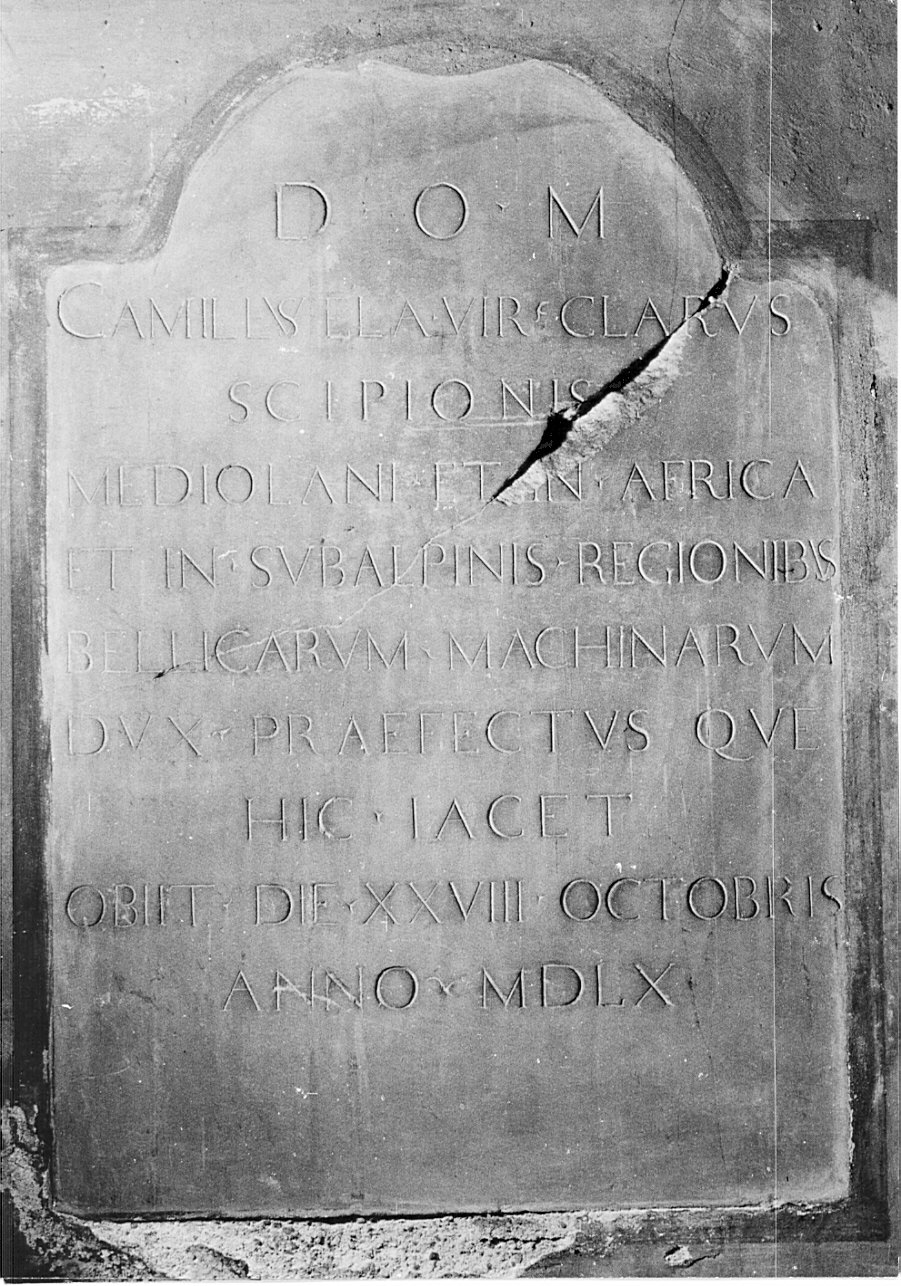 D · O · M
CAMILLVS ELA·VIR·CLARVS
SCIPIONIS
MEDIOLANI·ET·IN·AFRICA
ET IN·SVBALPINIS·REGIONIBVS
BELLICARVM·MACHINARVM
DVX·PRAEFECTVS QVE
HIC·IACET
OBIIT·DIE·XXVIII·OCTOBRIS
ANNO·MDLX